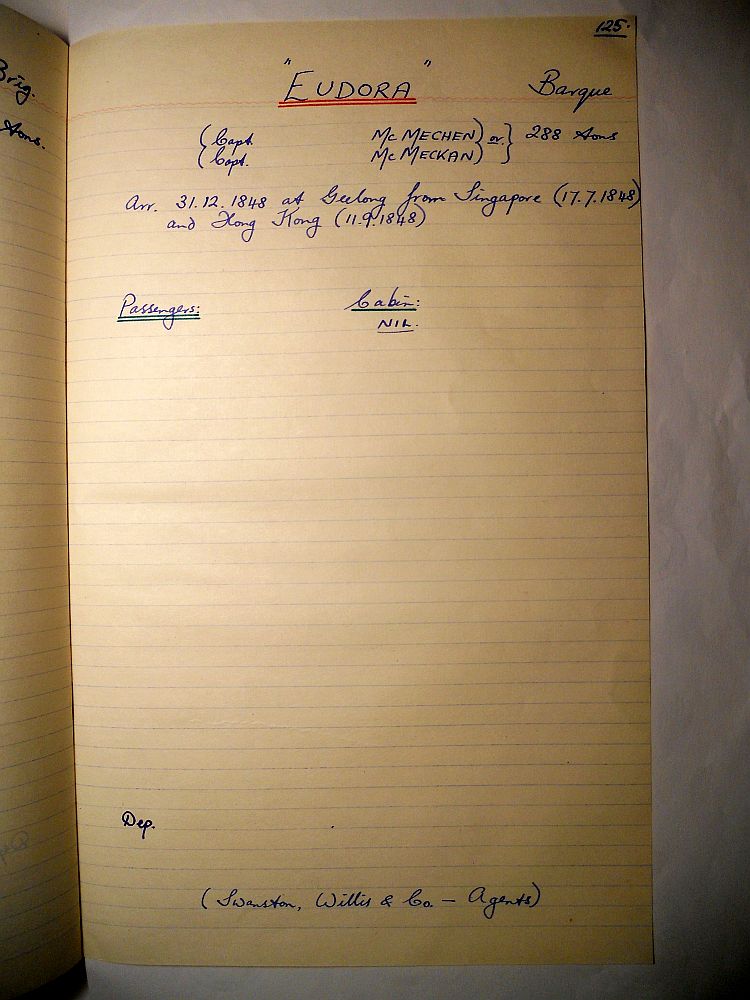 Brig.
tons.
125.
"EUDORA" Barque
(Capt. McMECHEN) or } 288 tons
(Capt. McMECKAN)
Arr. 31.12.1848 at Geelong from Singapore (17.7.1848)
and Hong Kong (11.9.1848)
Passengers: Cabin:
NIL.
Dep.
(Swanston, Willis & Co. — Agents)